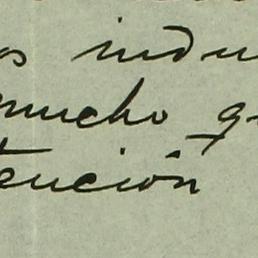 os indu
mucho qu
tención